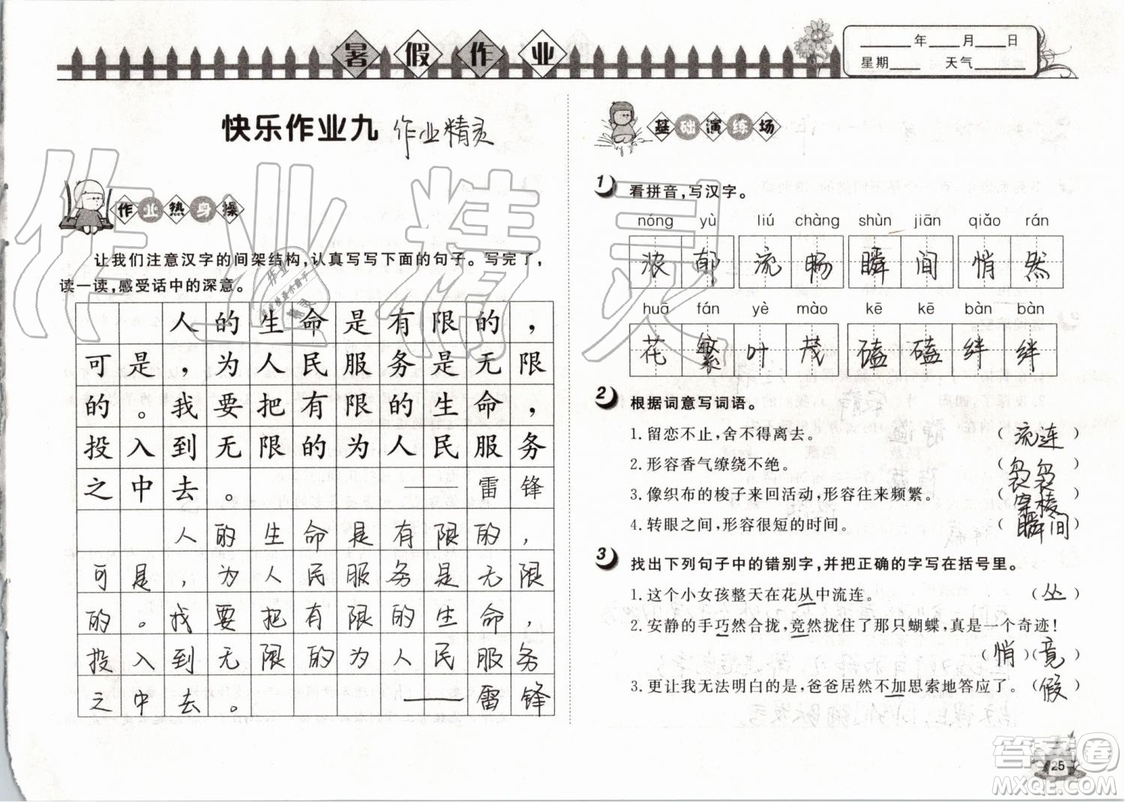 暑假作业
____年____月____日
星期____ 天气____
快乐作业九 作业精灵
作业热身操
让我们注意汉字的间架结构,认真写写下面的句子。写完了,
读一读,感受话中的深意。
人的生命是有限的,
可是,为人民服务是无限
的。我要把有限的生命,
投入到无限的为人民服务
之中去。——雷锋
人的生命是有限的,
可是,为人民服务是无限
的。我要把有限的生命,
投入到无限的为人民服务
之中去。——雷锋
基础演练场
1 看拼音,写汉字。
nóng yù liú chàng shùn jiān qiǎo rán
浓郁 流畅 瞬间 悄然
huā fán yè mào kē kē bàn bàn
花繁叶茂 磕磕绊绊
2 根据词意写词语。
1.留恋不止,舍不得离去。 (流连)
2.形容香气缭绕不绝。 (袅袅)
3.像织布的梭子来回活动,形容往来频繁。 (穿梭)
4.转眼之间,形容很短的时间。 (瞬间)
3 找出下列句子中的错别字,并把正确的字写在括号里。
1.这个小女孩整天在花从中流连。 (丛)
2.安静的手巧然合拢,竞然拢住了那只蝴蝶,真是一个奇迹!
(悄)(竟)
3.更让我无法明白的是,爸爸居然不加思索地答应了。 (假)
25
作业精灵
答案圈
MXQE.COM